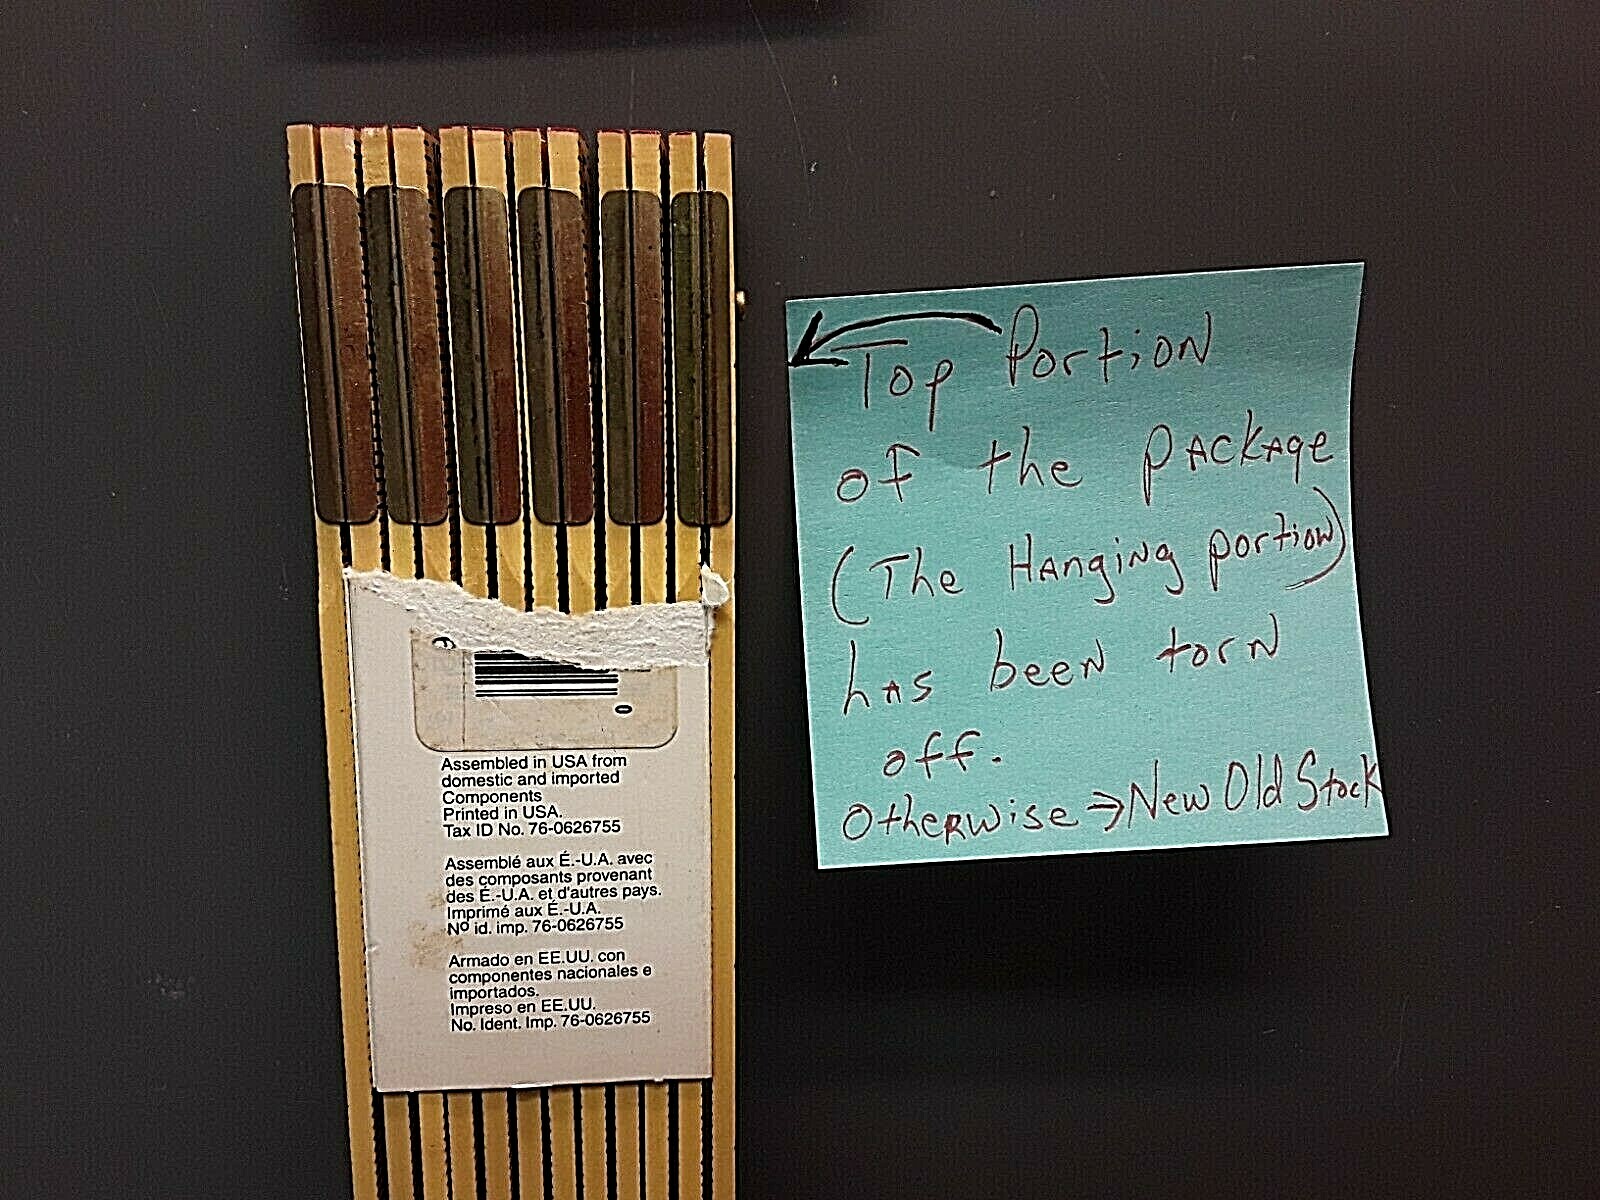 Assembled in USA from
domestic and imported
Components
Printed in USA.
Tax ID No. 76-0626755
Assemblé aux É.-U.A. avec
des composants provenant
des É.-U.A. et d'autres pays.
Imprimé aux É.-U.A.
Nº id. imp. 76-0626755
Armado en EE.UU. con
componentes nacionales e
importados.
Impreso en EE.UU.
No. Ident. Imp. 76-0626755
Top Portion
of the package
(The Hanging portion)
has been torn
off.
Otherwise → New Old Stock